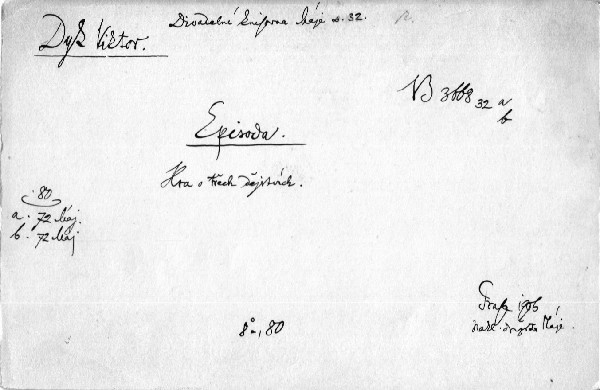 Divadelní knihovna Máje s. 32.
Dyk Viktor.
NB 3668 32 a
b
Episoda.
Hra o třech dějstvích.
80
a. 72 Máj.
b. 72 Máj
Praha 1906
nakl. družstvo Máje.
8°, 80